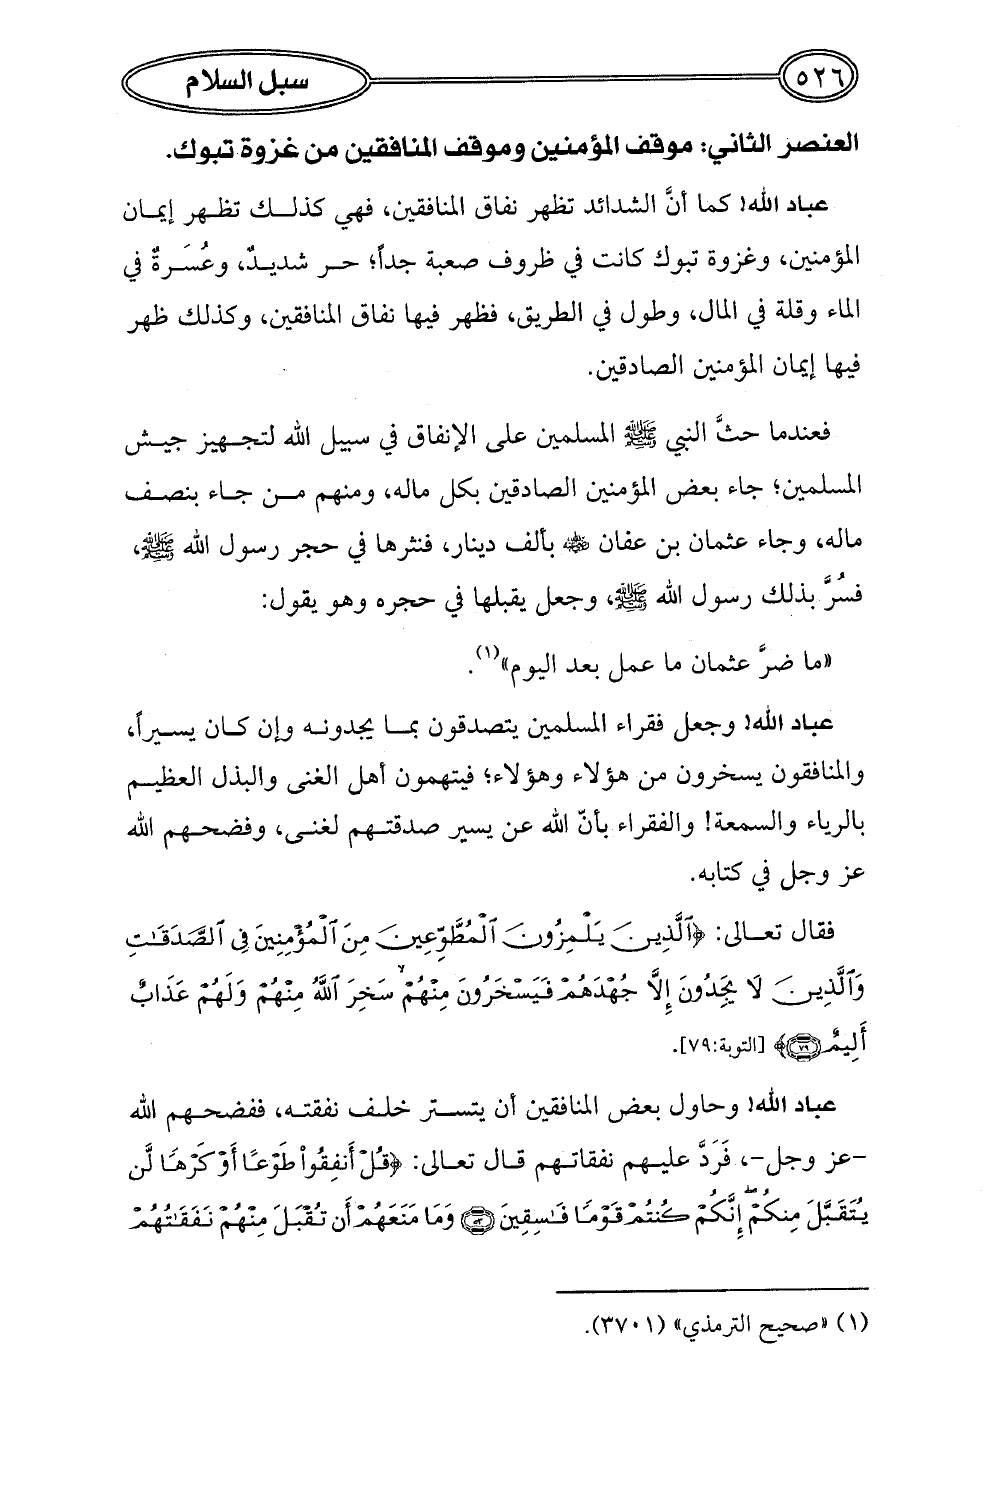 ٥٢٦ سبل السلام
العنصر الثاني: موقف المؤمنين وموقف المنافقين من غزوة تبوك.
عباد الله! كما أنَّ الشدائد تظهر نفاق المنافقين، فهي كذلك تظهر إيمان
المؤمنين، وغزوة تبوك كانت في ظروف صعبة جداً؛ حر شديدٌ، وعُسَرةٌ في
الماء وقلة في المال، وطول في الطريق، فظهر فيها نفاق المنافقين، وكذلك ظهر
فيها إيمان المؤمنين الصادقين.
فعندما حثَّ النبي ﷺ المسلمين على الإنفاق في سبيل الله لتجهيز جيش
المسلمين؛ جاء بعض المؤمنين الصادقين بكل ماله، ومنهم من جاء بنصف
ماله، وجاء عثمان بن عفان رضي الله عنه بألف دينار، فنثرها في حجر رسول الله ﷺ،
فسُرَّ بذلك رسول الله ﷺ، وجعل يقبلها في حجره وهو يقول:
«ما ضرَّ عثمان ما عمل بعد اليوم»(١).
عباد الله! وجعل فقراء المسلمين يتصدقون بما يجدونه وإن كان يسيراً،
والمنافقون يسخرون من هؤلاء وهؤلاء؛ فيتهمون أهل الغنى والبذل العظيم
بالرياء والسمعة! والفقراء بأنّ الله عن يسير صدقتهم لغنى، وفضحهم الله
عز وجل في كتابه.
فقال تعالى: ﴿ٱلَّذِينَ يَلْمِزُونَ ٱلْمُطَّوِّعِينَ مِنَ ٱلْمُؤْمِنِينَ فِي ٱلصَّدَقَٰتِ
وَٱلَّذِينَ لَا يَجِدُونَ إِلَّا جُهْدَهُمْ فَيَسْخَرُونَ مِنْهُمْ ۙ سَخِرَ ٱللَّهُ مِنْهُمْ وَلَهُمْ عَذَابٌ
أَلِيمٌ ٧٩﴾ [التوبة:٧٩].
عباد الله! وحاول بعض المنافقين أن يتستر خلف نفقته، ففضحهم الله
-عز وجل-، فَرَدَّ عليهم نفقاتهم قال تعالى: ﴿قُلْ أَنفِقُوا۟ طَوْعًا أَوْ كَرْهًا لَّن
يُتَقَبَّلَ مِنكُمْ ۖ إِنَّكُمْ كُنتُمْ قَوْمًا فَٰسِقِينَ ٥٣ وَمَا مَنَعَهُمْ أَن تُقْبَلَ مِنْهُمْ نَفَقَٰتُهُمْ
(١) «صحيح الترمذي» (٣٧٠١).